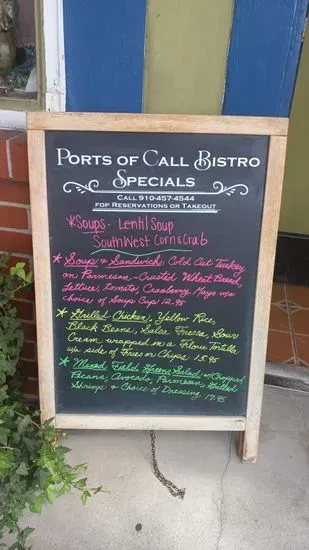 PORTS OF CALL BISTRO
SPECIALS
CALL 910-457-4544
FOR RESERVATIONS OR TAKEOUT
*Soups- Lentil Soup
SouthWest Corn & Crab
* Soup & Sandwich, Cold Cut Turkey
on Parmesan-Crusted Wheat Bread,
lettuce, tomato Cranberry Mayo w/a
choice of Soup Cup 12.95
* Grilled Chicken, Yellow Rice,
Black Beans, Salsa Fresca, Sour
Cream wrapped in a Flour Tortilla
w/a side of Fries or Chips 15.95
* Mixed Field Greens Salad w/Chopped
Pecans, Avocado, Parmesan, Grilled
Shrimp & Choice of Dressing 17.95